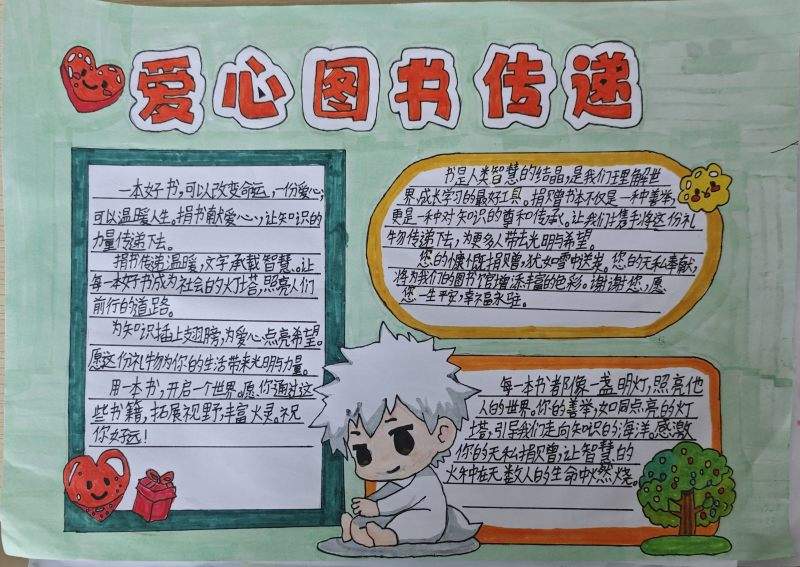 爱心图书传递
一本好书,可以改变命运,一份爱心,
可以温暖人生。捐书献爱心,让知识的
力量传递下去。
捐书传递温暖,文字承载智慧。让
每一本好书成为社会的灯塔,照亮人们
前行的道路。
为知识插上翅膀,为爱心点亮希望。
愿这份礼物为你的生活带来光明与力量。
用一本书,开启一个世界。愿你通过这
些书籍,拓展视野,丰富火灵。祝
你好运!
书是人类智慧的结晶,是我们理解世
界,成长学习的最好工具。捐赠书本不仅是一种善举,
更是一种对知识的尊重和传承。让我们携手将这份礼
物传递下去,为更多人带去光明与希望。
您的慷慨捐赠,犹如雪中送炭。您的无私奉献,
将为我们的图书馆增添丰富的色彩。谢谢您,愿
您一生平安,幸福永驻。
每一本书都像一盏明灯,照亮他
人的世界。你的善举,如同点亮的灯
塔,引导我们走向知识的海洋。感激
你的无私捐赠,让智慧的
火种在无数人的生命中燃烧。